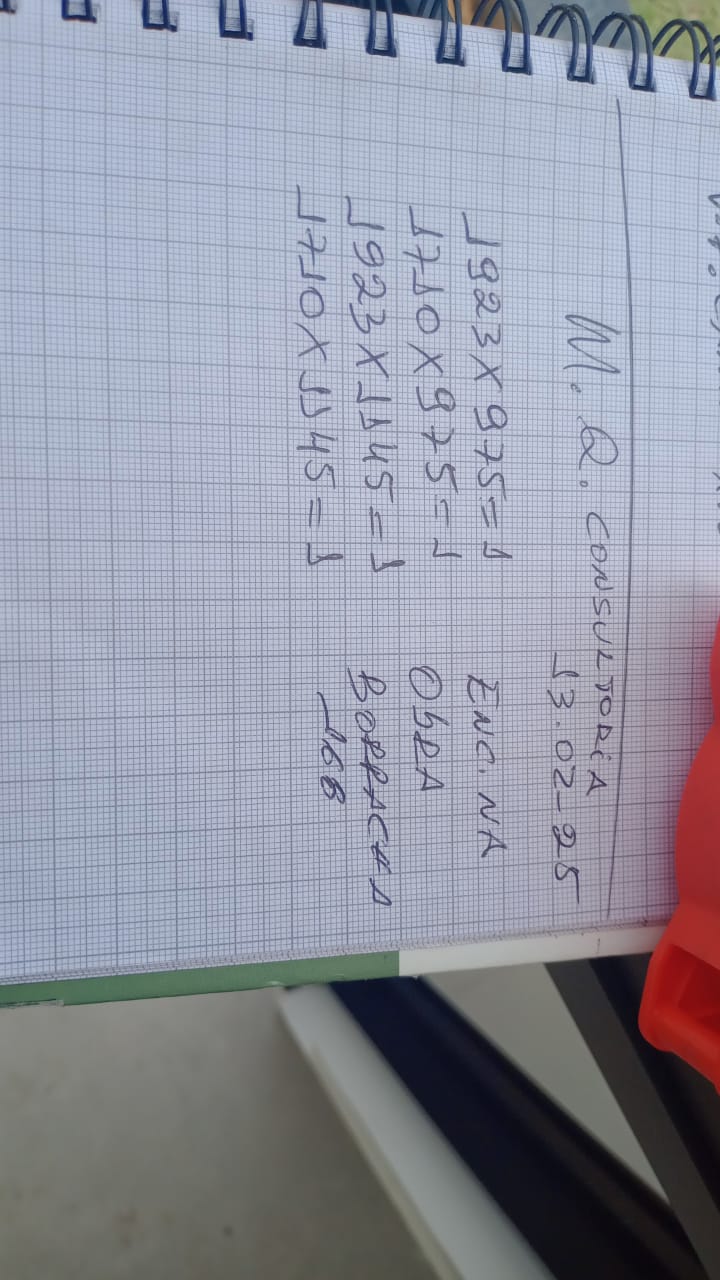 M.Q. CONSULTORIA
13.02-25
1923X975=1 ENC. NA
1710X975=1 OBRA
1923X1145=1 BORRACHA
1710X1145=1